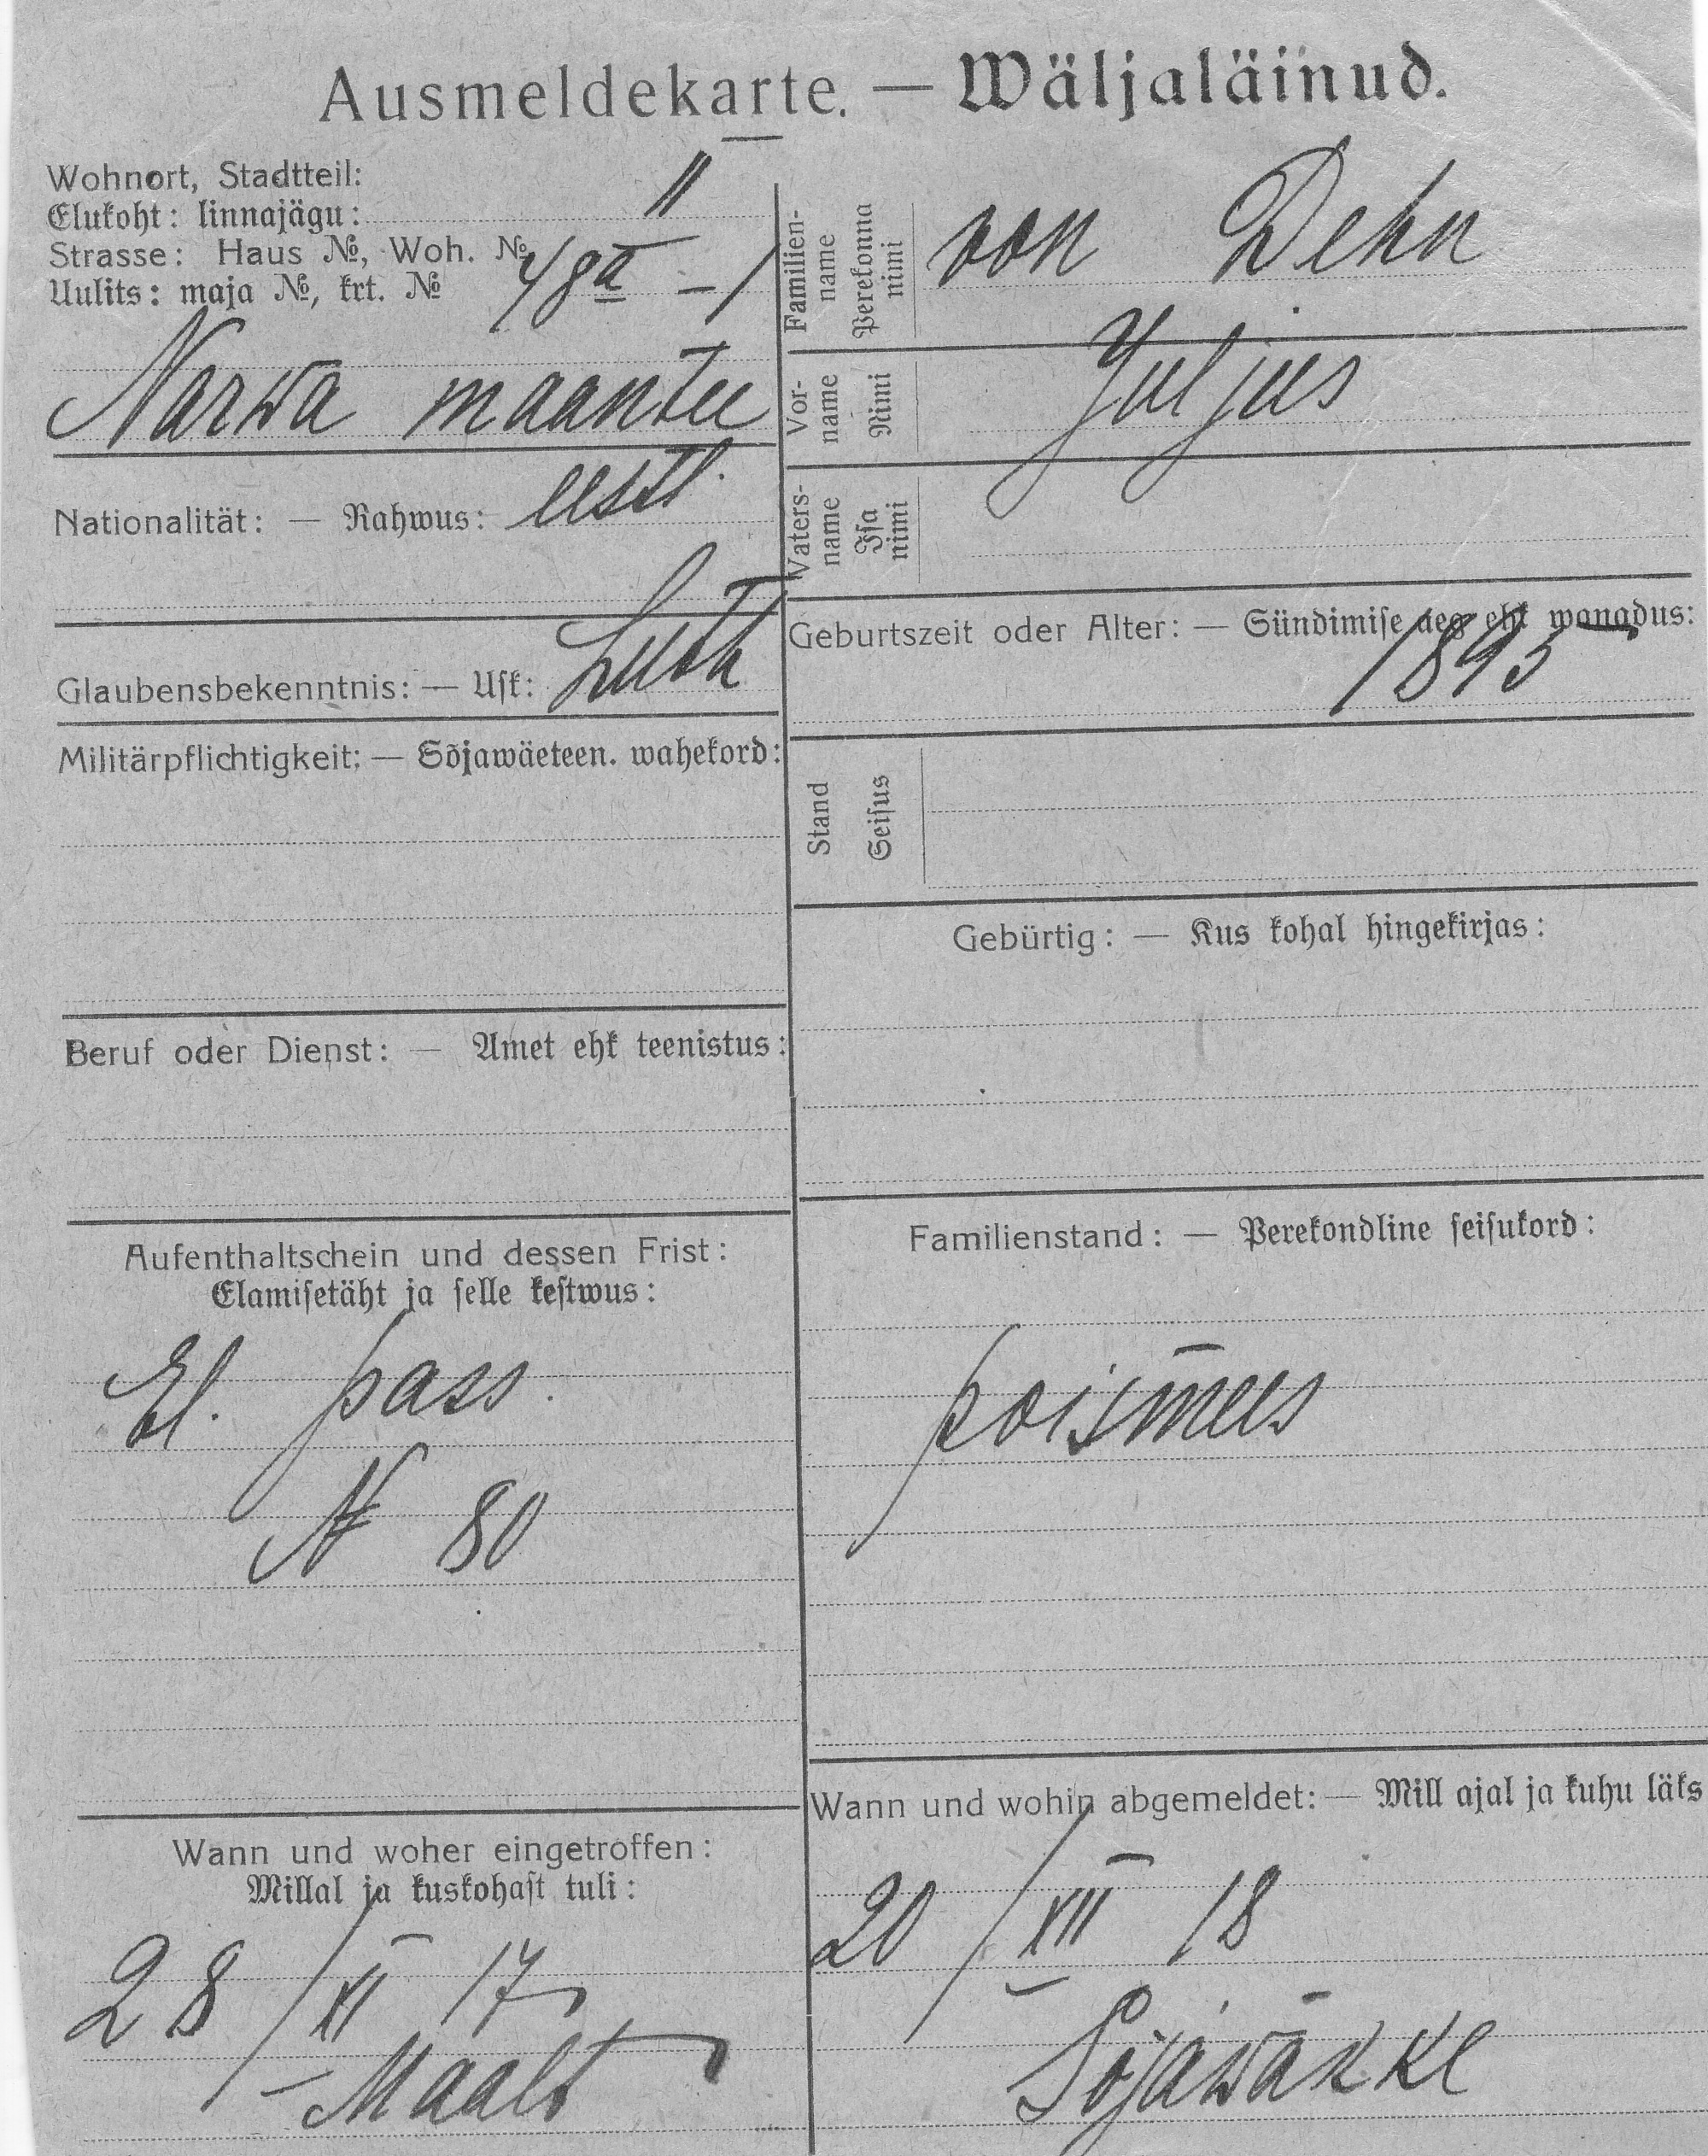 Ausmeldekarte. — Wäljaläinud.
Wohnort, Stadtteil:
Elukoht: linnajägu: II
Strasse: Haus №, Woh. №
Uulits: maja №, krt. № 48a – 1
Narwa maantee
Nationalität: — Rahwus: eestl.
Glaubensbekenntnis: — Uſk: Luth
Militärpflichtigkeit: — Sõjawäeteen. wahekord:
Beruf oder Dienst: — Amet ehk teenistus:
Aufenthaltschein und dessen Frist:
Elamiſetäht ja ſelle keſtwus:
El. pass.
№ 80
Wann und woher eingetroffen:
Millal ja kuskohaſt tuli:
28/XI 17
Maalt
Familien-
name
Perekonna
nimi
von Dehn
Vor-
name
Nimi
Juljus
Vaters-
name
Iſa
nimi
Geburtszeit oder Alter: — Sündimiſe aeg ehk wanadus:
1895
Stand
Seiſus
Gebürtig: — Kus kohal hingekirjas:
Familienstand: — Perekondline ſeiſukord:
poismees
Wann und wohin abgemeldet: — Mill ajal ja kuhu läks
20/XII 18
Sõjawäkke